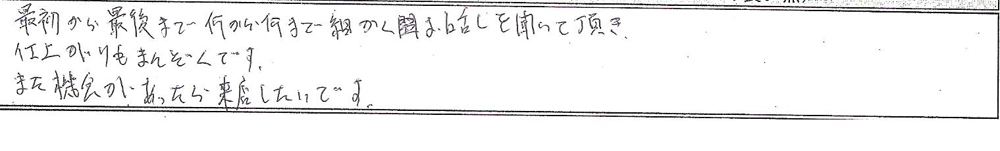 最初から最後まで何から何まで細かく聞お話しを伺って頂き
仕上がりもまんぞくです。
また機会があったら来店したいです。